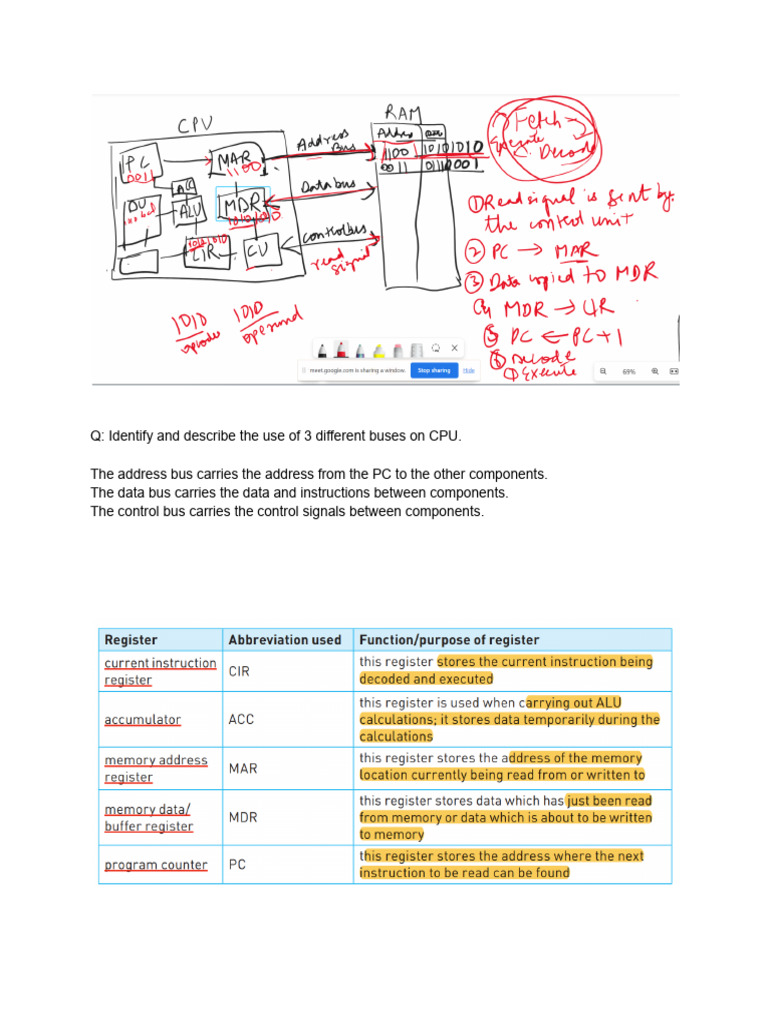 CPU
RAM
PC
0011
MAR
1100
Address
Bus
Addres
1100
10101010
0011
01110001
Fetch
Execute
Decode
ACC
DU
ALU
MDR
10101010
Data bus
10101010
CIR
CU
control bus
read
signal
1010 1010
opcode operand
① Read signal is sent by
the control unit
② PC → MAR
③ Data copied to MDR
④ MDR → CIR
⑤ PC ← PC + 1
⑥ Decode
⑦ Execute
meet.google.com is sharing a window. Stop sharing Hide
69%
Q: Identify and describe the use of 3 different buses on CPU.
The address bus carries the address from the PC to the other components.
The data bus carries the data and instructions between components.
The control bus carries the control signals between components.
Register Abbreviation used Function/purpose of register
current instruction
register
CIR
this register stores the current instruction being
decoded and executed
accumulator
ACC
this register is used when carrying out ALU
calculations; it stores data temporarily during the
calculations
memory address
register
MAR
this register stores the address of the memory
location currently being read from or written to
memory data/
buffer register
MDR
this register stores data which has just been read
from memory or data which is about to be written
to memory
program counter
PC
this register stores the address where the next
instruction to be read can be found